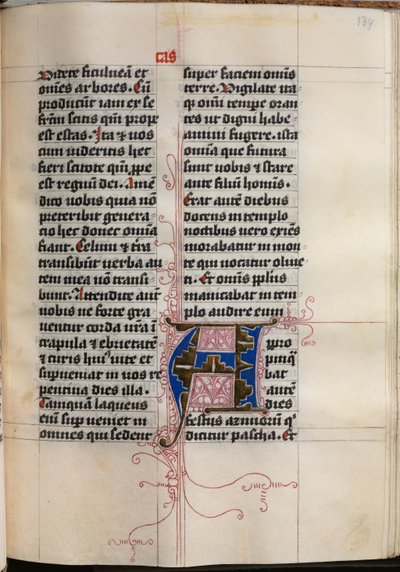 134
cas
Videte ficulneā et
om̄es arbores. Cū
producūt iam ex se
frm̄ scitis qm̄ prope
est estas. Ita et vos
cum videritis hec
fieri scitote qm̄ ꝓpe
est regnū dei. Amē
dico vobis quia nō
preteribit genera
cio hec donec om̄ia
fiant. Celum et t̄ra
transibūt verba au
tem mea nō transi
bunt. Attendite aut̄
vobis ne forte gra
uentur corda vr̄a ī
crapula et ebrietate
et curis huiꝰ vite et
supueniat in vos re
pentina dies illa.
Tamquā laqueus
eni sup̄ueniet in
omnes qui sedent
super faciem om̄is
terre. Vigilate ita
qꝫ om̄i tempore oran
tes ut digni habe
amini fugere. ista
omnia que futura
sunt uobis et stare
ante filiū hominis.
Erat autē diebus
docens in templo
noctibus vero exiēs
morabatur in mon
te qui uocatur oliue
ti. Et omnis pplūs
manicabat in tem
plo audire eum
Appro
pinqꝫ
bat
autē
dies
festus azimorū qͥ
dicitur pascha. Et